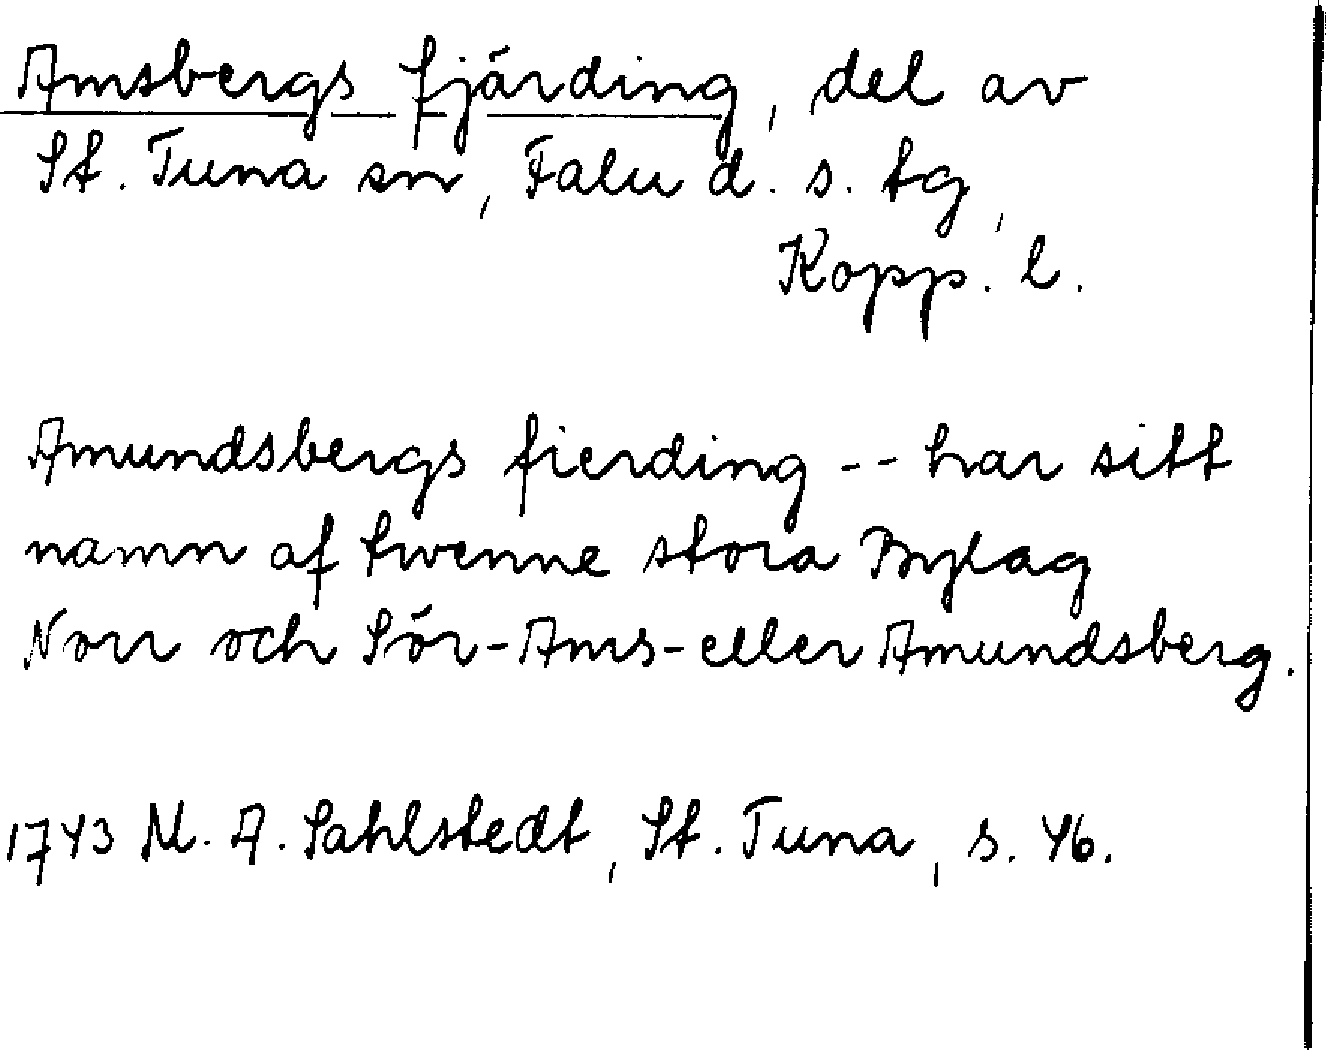 Amsbergs fjärding, del av
St. Tuna sn, Falu d. s. tg,
Kopp. l.
Amundsbergs fierding -- har sitt
namn af twenne stora Bylag
Norr och Sör-Ams-eller Amundsberg.
1743 M. A. Sahlstedt, St. Tuna, s. 46.